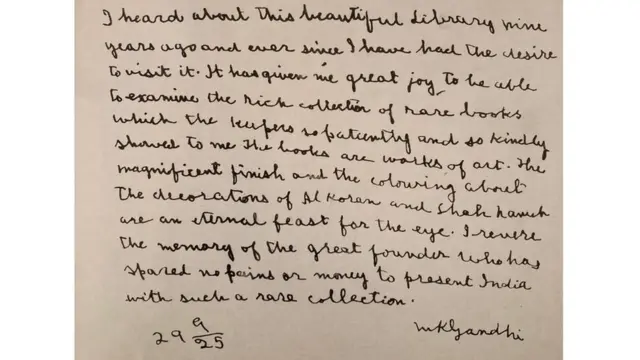 I heard about this beautiful Library nine
years ago and ever since I have had the desire
to visit it. It has given me great joy to be able
to examine the rich collection of rare books
which the keepers so patiently and so kindly
showed to me. The books are works of art. The
magnificent finish and the colouring about
the decorations of Al Koran and Shah Namah
are an eternal feast for the eye. I revere
the memory of the great founder who has
spared no pains or money to present India
with such a rare collection.
MKGandhi
29 9/25